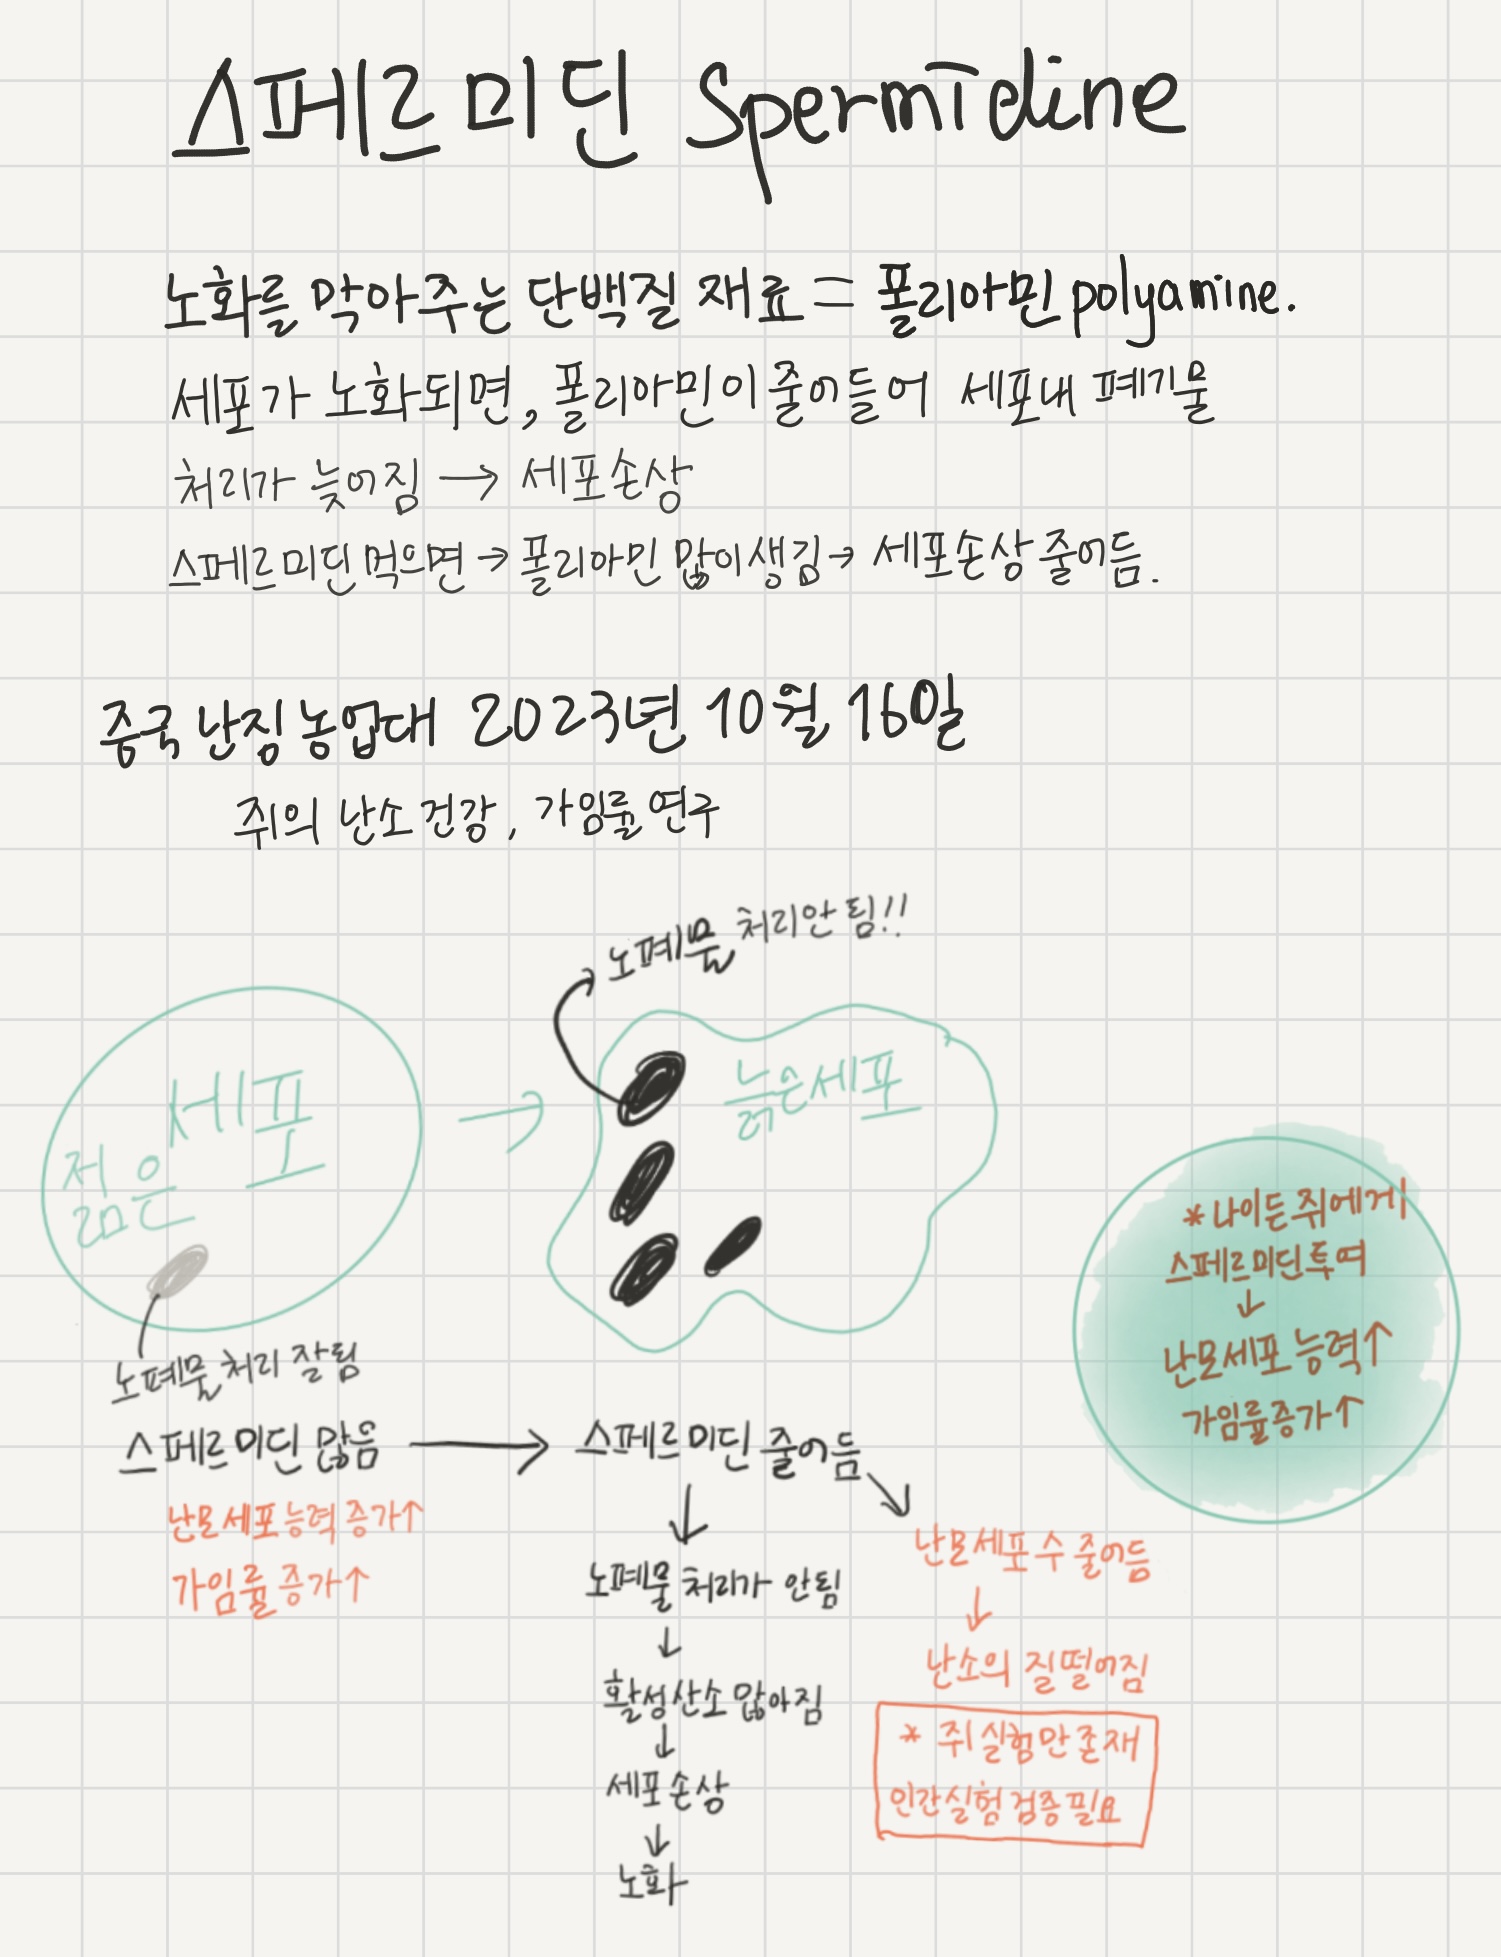 스페르미딘 Spermidine
노화를 막아주는 단백질 재료 = 폴리아민 polyamine.
세포가 노화되면, 폴리아민이 줄어들어 세포내 폐기물
처리가 늦어짐 → 세포손상
스페르미딘 먹으면 → 폴리아민 많이생김 → 세포손상 줄어듬.
중국 난징 농업대 2023년 10월 16일
쥐의 난소건강, 가임률 연구
노폐물 처리안됨!!
젊은 세포
→
늙은세포
노폐물 처리 잘됨
*나이든쥐에게
스페르미딘투여
↓
난모세포 능력↑
가임률증가↑
스페르미딘 많음 → 스페르미딘 줄어듬
난모세포능력 증가↑
가임률 증가↑
↓
노폐물 처리가 안됨
↓
활성산소 많아짐
↓
세포손상
↓
노화
↘
난모세포수 줄어듬
↓
난소의 질떨어짐
* 쥐실험만존재
인간실험 검증필요